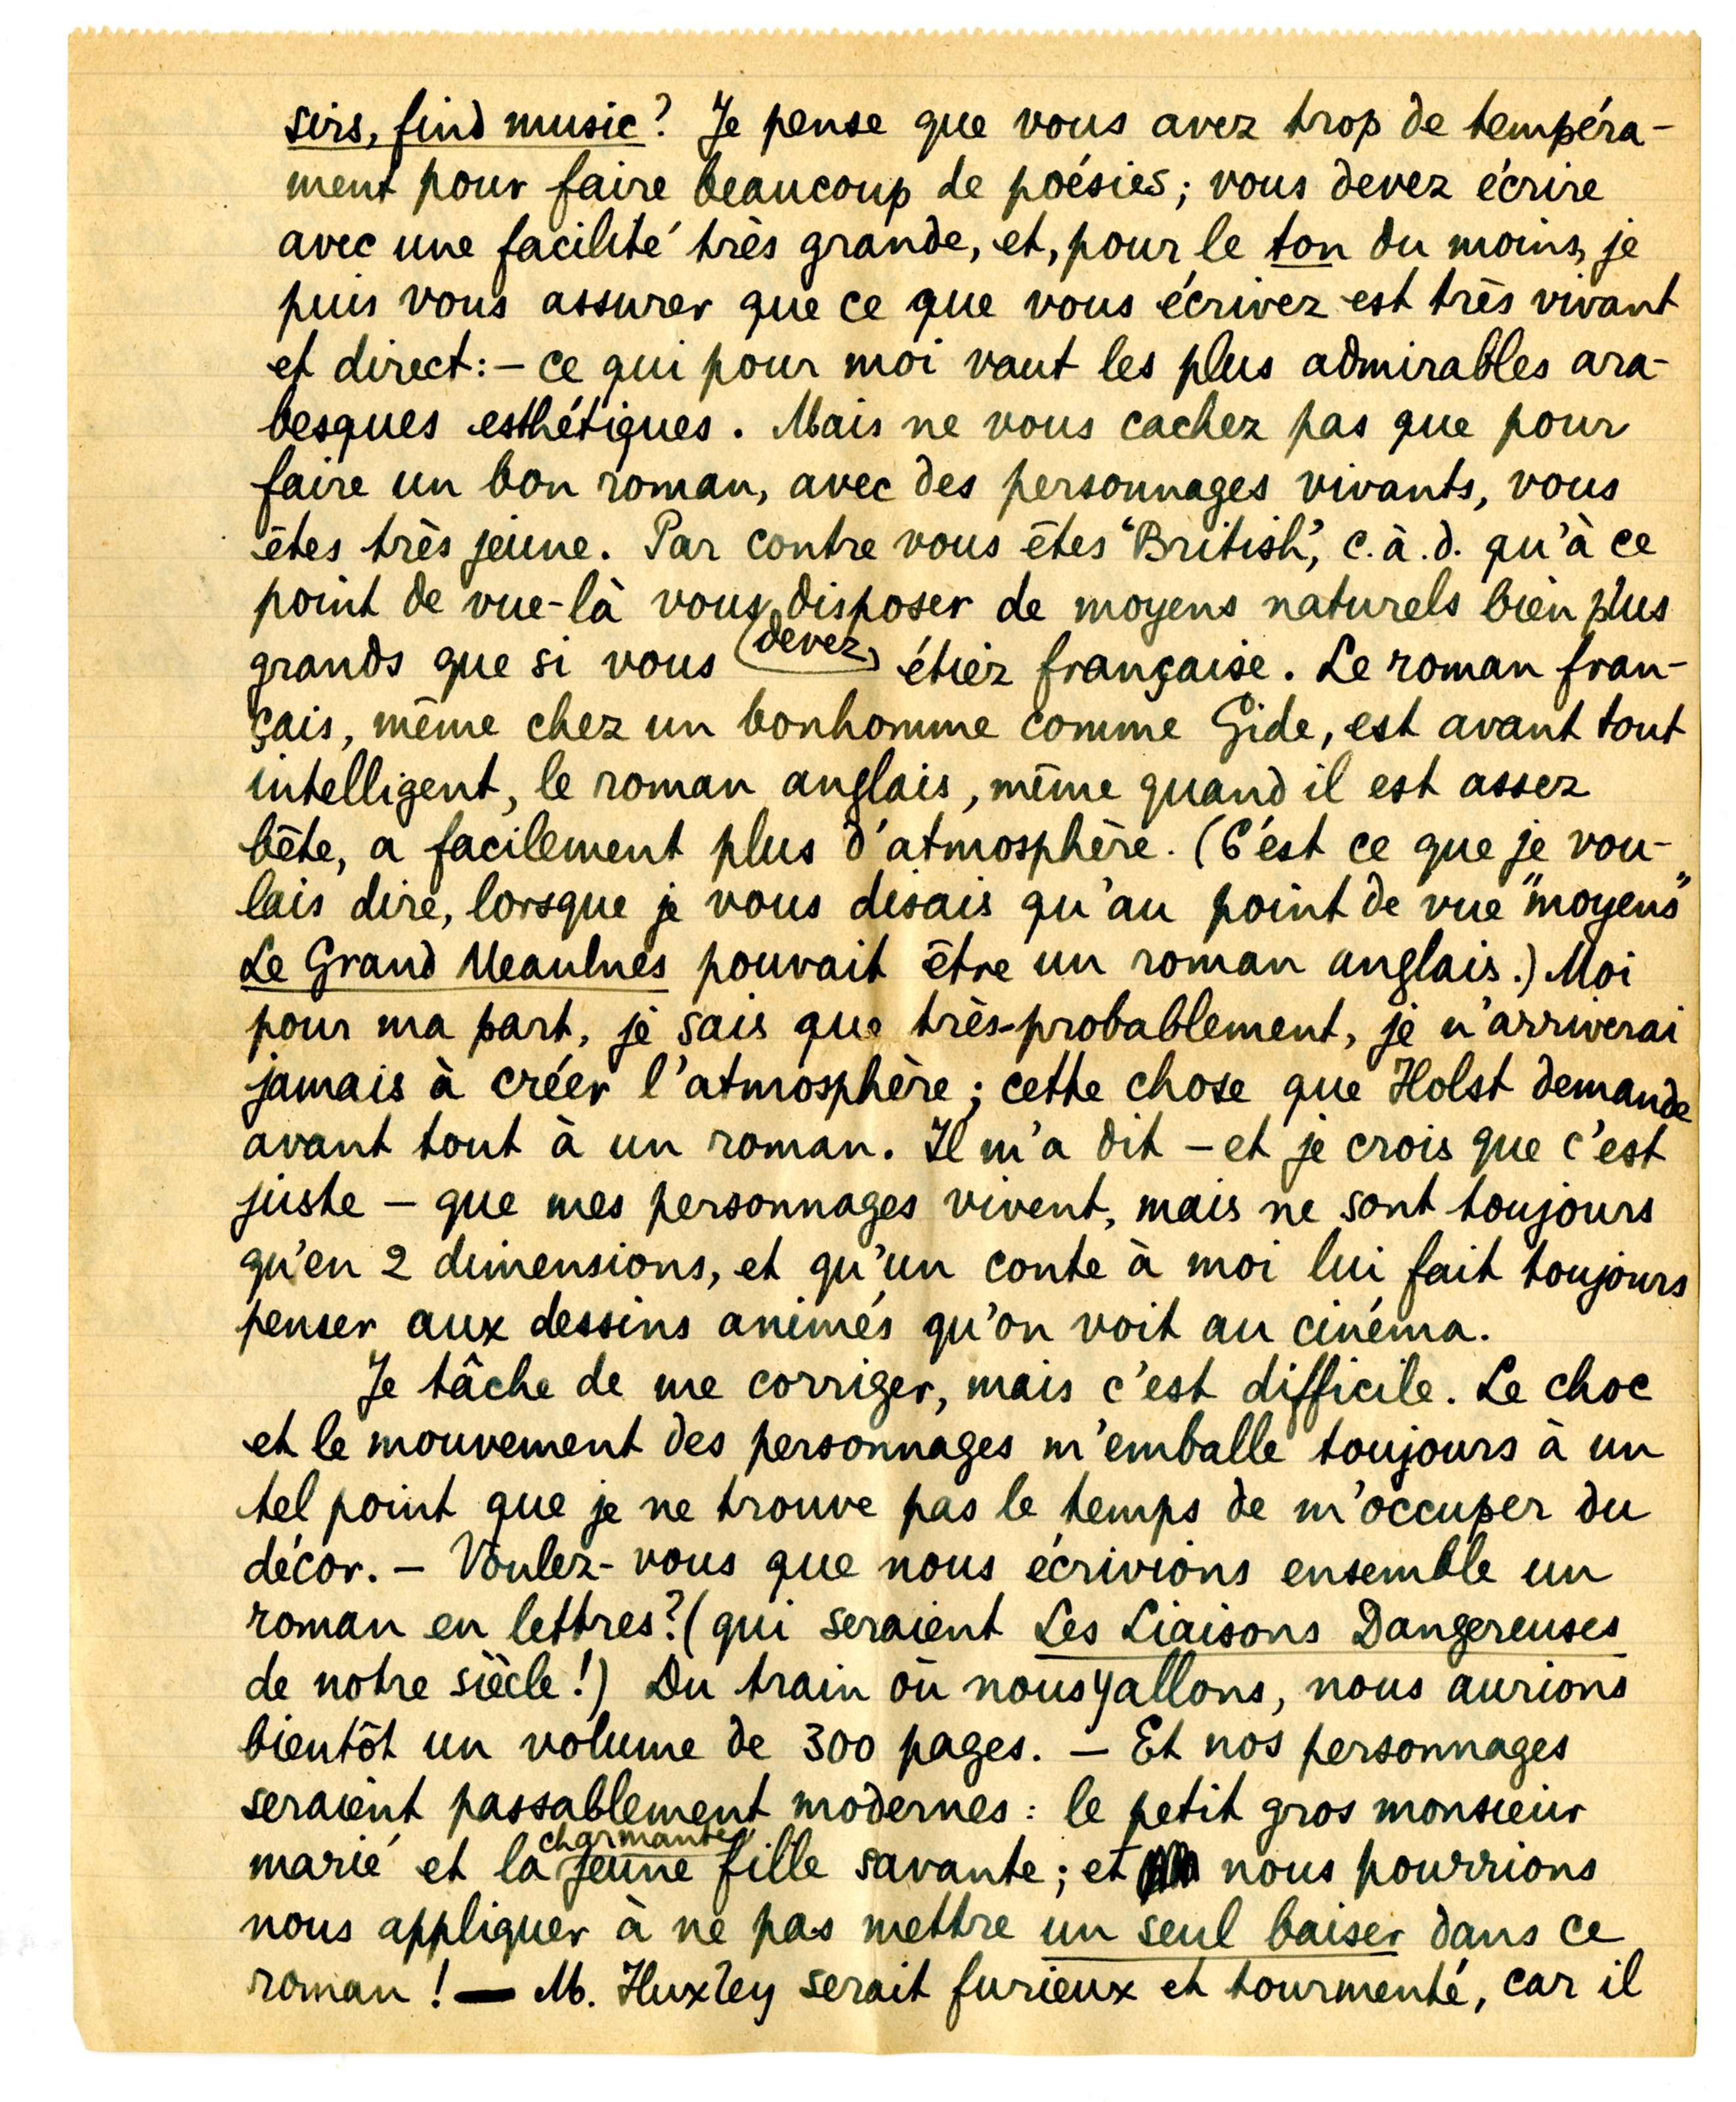 sirs, find music? Je pense que vous avez trop de tempéra-
ment pour faire beaucoup de poésies; vous devez écrire
avec une facilité très grande, et, pour le ton du moins, je
puis vous assurer que ce que vous écrivez est très vivant
et direct: – ce qui pour moi vaut les plus admirables ara-
besques esthétiques. Mais ne vous cachez pas que pour
faire un bon roman, avec des personnages vivants, vous
êtes très jeune. Par contre vous êtes "British", c.à.d. qu'à ce
point de vue-là vous disposer de moyens naturels bien plus
devez
grands que si vous étiez française. Le roman fran-
çais, même chez un bonhomme comme Gide, est avant tout
intelligent, le roman anglais, même quand il est assez
bête, a facilement plus d'atmosphère. (C'est ce que je vou-
lais dire, lorsque je vous disais qu'au point de vue "moyens"
Le Grand Meaulnes pouvait être un roman anglais.) Moi
pour ma part, je sais que très-probablement, je n'arriverai
jamais à créer l'atmosphère; cette chose que Holst demande
avant tout à un roman. Il m'a dit – et je crois que c'est
juste – que mes personnages vivent, mais ne sont toujours
qu'en 2 dimensions, et qu'un conte à moi lui fait toujours
penser aux dessins animés qu'on voit au cinéma.
Je tâche de me corriger, mais c'est difficile. Le choc
et le mouvement des personnages m'emballe toujours à un
tel point que je ne trouve pas le temps de m'occuper du
décor. – Voulez-vous que nous écrivions ensemble un
roman en lettres? (qui seraient Les Liaisons Dangereuses
de notre siècle!) Du train où nous y allons, nous aurions
bientôt un volume de 300 pages. – Et nos personnages
seraient passablement modernes: le petit gros monsieur
charmante
marié et la jeune fille savante; et nous pourrions
nous appliquer à ne pas mettre un seul baiser dans ce
roman! — M. Huxley serait furieux et tourmenté, car il